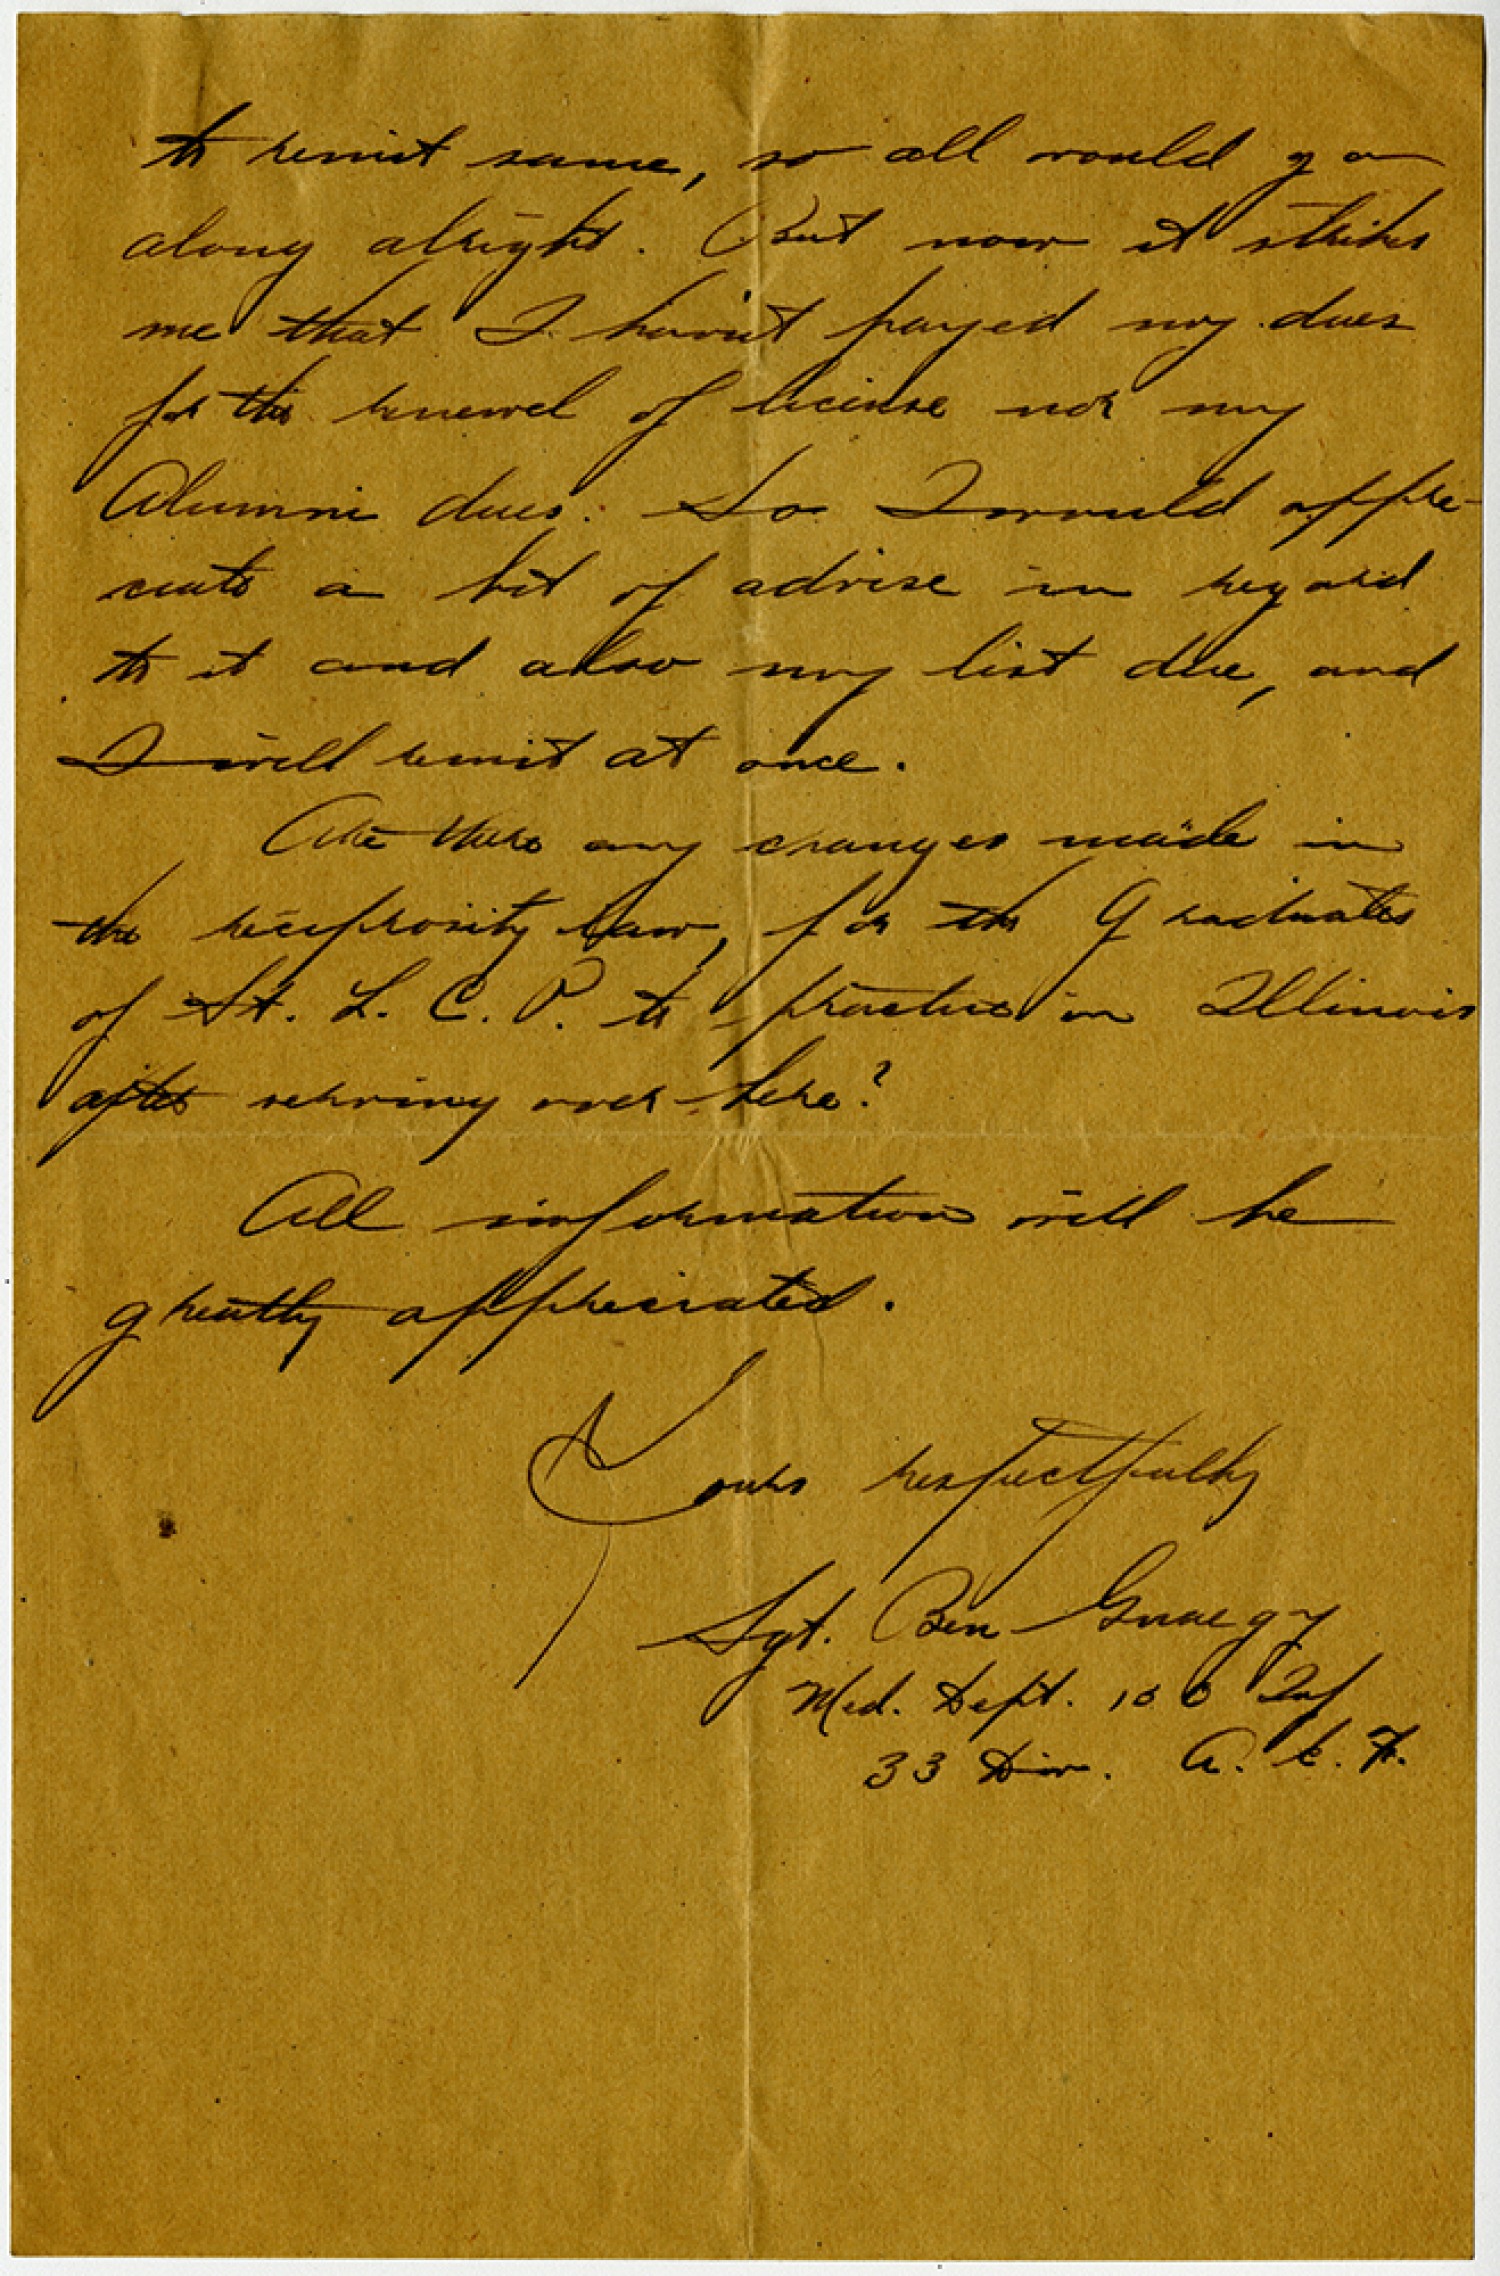 to remit same, so all would go
along alright. But now it strikes
me that I havn't payed my dues
for the renewel of license nor my
Alumni dues. So I would appre-
ciate a bit of advise in regard
to it and also my list due, and
I will remit at once.
Are there any changes made in
the reciprosity law, for the Graduates
of St. L. C. P. to practice in Illinois
after serving over here?
All information will be
greatly appreciated.
Yours respectfully
Sgt. Ben Gnaegy
Med. Dept. 130 Inf
33 Div. A. E. F.